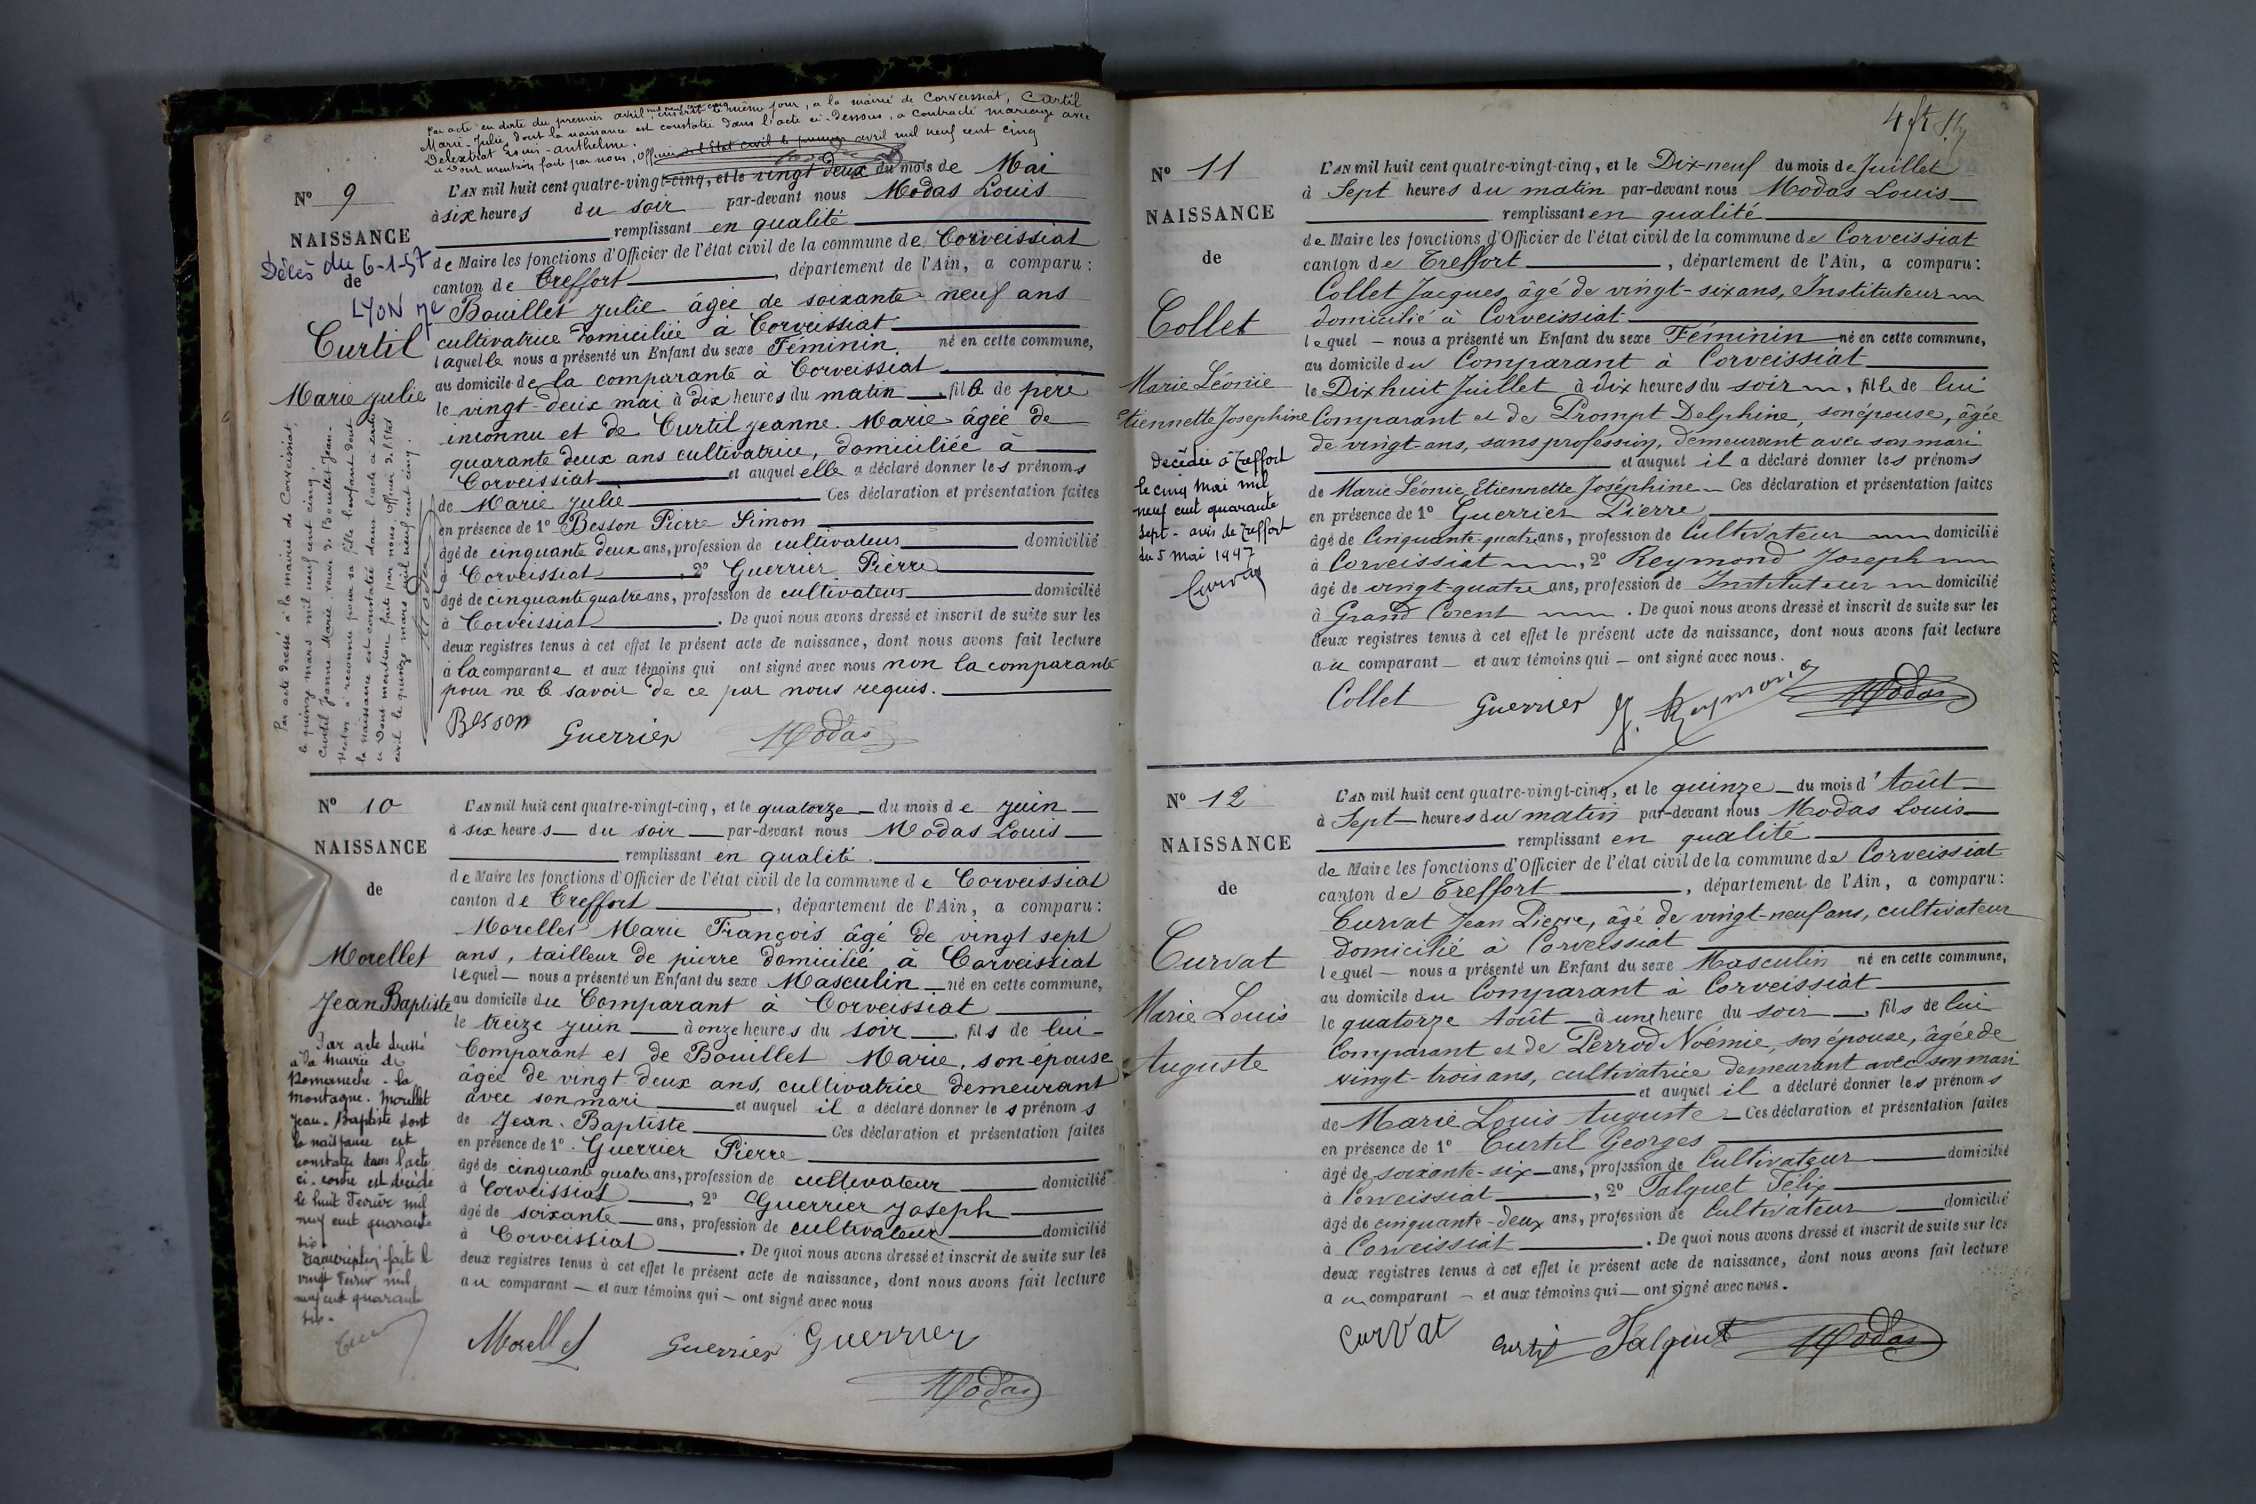 Par acte en date du premier avril mil neuf cent cinq, inscrit le même jour, a la mairie de Corveissiat, Curtil
Marie-Julie, dont la naissance est constatée dans l'acte ci-dessus, a contracté mariage avec
Delextrat Louis-Anthelme.
Dont mention faite par nous, Officier de l'Etat civil le premier avril mil neuf cent cinq
Nº 9
NAISSANCE
Décès du 6-1-57
de
LYON 7e
Curtil
Marie Julie
Par acte dressé a la mairie de Corveissiat,
le quinze mars mil neuf cent cinq,
Curtil Jeanne Marie veuve de Bouillet Jean-
a reconnu pour sa fille l'enfant dont
la naissance est constatée dans l'acte ci contre
Dont mention faite par nous, Officier de l'Etat
civil le quinze mars mil neuf cent cinq.
L'AN mil huit cent quatre-vingt-cinq, et le vingt deux du mois de Mai
à six heures du soir par-devant nous Modas Louis
remplissant en qualité
de Maire les fonctions d'Officier de l'état civil de la commune de Corveissiat
canton de Treffort, département de l'Ain, a comparu:
Bouillet Julie âgée de soixante-neuf ans
cultivatrice domiciliée à Corveissiat
laquelle nous a présenté un Enfant du sexe Féminin né en cette commune,
au domicile de la comparante à Corveissiat
le vingt-deux mai à dix heures du matin, fille de père
inconnu et de Curtil Jeanne-Marie âgée de
quarante deux ans cultivatrice, domiciliée à
Corveissiat et auquel elle a déclaré donner les prénoms
de Marie Julie Ces déclaration et présentation faites
en présence de 1º Besson Pierre Simon
âgé de cinquante deux ans, profession de cultivateur domicilié
à Corveissiat, 2º Guerrier Pierre
âgé de cinquante quatre ans, profession de cultivateur domicilié
à Corveissiat. De quoi nous avons dressé et inscrit de suite sur les
deux registres tenus à cet effet le présent acte de naissance, dont nous avons fait lecture
à la comparante et aux témoins qui ont signé avec nous non la comparante
pour ne le savoir de ce par nous requis.
Besson Guerrier Modas
Nº 10
NAISSANCE
de
Morellet
Jean Baptiste
Par acte dressé
à la mairie de
Romanèche-la
montagne. Morellet
Jean-Baptiste dont
la naissance est
constatée dans l'acte
ci-contre est décédé
le huit Février mil
neuf cent quarante
six.
Transcription faite le
vingt Février mil
neuf cent quarante
six.
L'AN mil huit cent quatre-vingt-cinq, et le quatorze du mois de Juin
à six heures du soir par-devant nous Modas Louis
remplissant en qualité
de Maire les fonctions d'Officier de l'état civil de la commune de Corveissiat
canton de Treffort, département de l'Ain, a comparu:
Morellet Marie François âgé de vingt sept
ans, tailleur de pierre domicilié a Corveissiat
lequel nous a présenté un Enfant du sexe Masculin né en cette commune,
au domicile du Comparant à Corveissiat
le treize Juin à onze heures du soir, fils de lui
Comparant et de Bouillet Marie, son épouse
âgée de vingt-deux ans, cultivatrice demeurant
avec son mari et auquel il a déclaré donner les prénoms
de Jean-Baptiste Ces déclaration et présentation faites
en présence de 1º Guerrier Pierre
âgé de cinquante quatre ans, profession de cultivateur domicilié
à Corveissiat, 2º Guerrier Joseph
âgé de soixante ans, profession de cultivateur domicilié
à Corveissiat. De quoi nous avons dressé et inscrit de suite sur les
deux registres tenus à cet effet le présent acte de naissance, dont nous avons fait lecture
au comparant et aux témoins qui ont signé avec nous
Morellet Guerrier Guerrier
Modas
4
Nº 11
NAISSANCE
de
Collet
Marie Léonie
Etiennette Josephine
Décédée à Treffort
le cinq Mai mil
neuf cent quarante
sept - avis de Treffort
du 5 Mai 1947
L'AN mil huit cent quatre-vingt-cinq, et le Dix-neuf du mois de Juillet
à Sept heures du matin par-devant nous Modas Louis
remplissant en qualité
de Maire les fonctions d'Officier de l'état civil de la commune de Corveissiat
canton de Treffort, département de l'Ain, a comparu:
Collet Jacques, âgé de vingt-six ans, Instituteur
domicilié à Corveissiat
lequel nous a présenté un Enfant du sexe Féminin né en cette commune,
au domicile du Comparant à Corveissiat
le Dix huit Juillet à dix heures du soir, fille de lui
Comparant et de Prompt Delphine, son épouse, âgée
de vingt-ans, sans profession, demeurant avec son mari
et auquel il a déclaré donner les prénoms
de Marie Léonie Etiennette Joséphine Ces déclaration et présentation faites
en présence de 1º Guerrier Pierre
âgé de Cinquante-quatre ans, profession de Cultivateur domicilié
à Corveissiat, 2º Reymond Joseph
âgé de vingt-quatre ans, profession de Instituteur domicilié
à Grand Corent. De quoi nous avons dressé et inscrit de suite sur les
deux registres tenus à cet effet le présent acte de naissance, dont nous avons fait lecture
au comparant et aux témoins qui ont signé avec nous.
Collet Guerrier J. Reymond Modas
Nº 12
NAISSANCE
de
Curvat
Marie Louis
Auguste
L'AN mil huit cent quatre-vingt-cinq, et le quinze du mois d'Août
à Sept heures du matin par-devant nous Modas Louis
remplissant en qualité
de Maire les fonctions d'Officier de l'état civil de la commune de Corveissiat
canton de Treffort, département de l'Ain, a comparu:
Curvat Jean Pierre, âgé de vingt-neuf ans, cultivateur
domicilié à Corveissiat
lequel nous a présenté un Enfant du sexe Masculin né en cette commune,
au domicile du Comparant à Corveissiat
le quatorze Août à une heure du soir, fils de lui
Comparant et de Perrod Noémie, son épouse, âgée de
vingt-trois ans, cultivatrice demeurant avec son mari
et auquel il a déclaré donner les prénoms
de Marie Louis Auguste Ces déclaration et présentation faites
en présence de 1º Curtil Georges
âgé de soixante-six ans, profession de Cultivateur domicilié
à Corveissiat, 2º Falquet Félix
âgé de cinquante-deux ans, profession de Cultivateur domicilié
à Corveissiat. De quoi nous avons dressé et inscrit de suite sur les
deux registres tenus à cet effet le présent acte de naissance, dont nous avons fait lecture
au comparant et aux témoins qui ont signé avec nous.
Curvat Curtil Falquet Modas